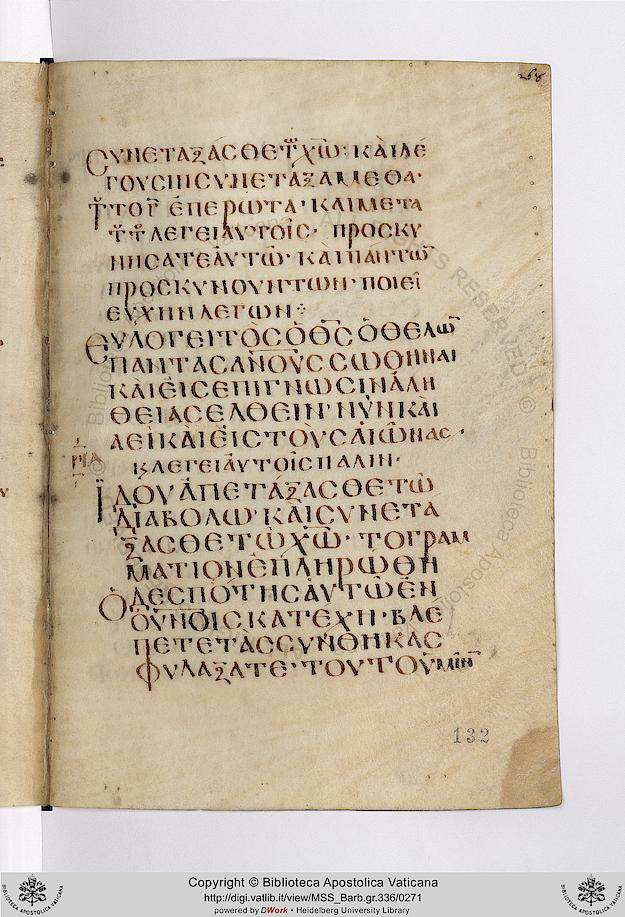 268
Συνετάξασθε τῷ χ̅ω̅· καὶ λέ
γουσιν συνεταξάμεθα·
τοῦτο γ̅ ἐπερωτᾷ· καὶ μετὰ
λέγει αὐτοῖς· προσκυ
νήσατε αὐτῷ· καὶ πάντω̅
προσκυνούντων· ποιεῖ
εὐχὴν λέγων
Εὐλογειτὸς ὁ θ̅ς̅ ὁ θέλω̅
πάντας ἀν̅ο̅υ̅ς̅ σωθῆναι
καὶ εἰς ἐπίγνωσιν ἀλη
θείας ἐλθεῖν· νῦν καὶ
ἀεὶ καὶ εἰς τοὺς αἰῶνας·
κ λέγει αὐτοῖς πάλιν·
Ἰδοὺ ἀπετάξασθε τῷ
διαβόλῳ· καὶ συνετά
ξασθε τῷ χ̅ω̅· τὸ γραμ
ματῖον ἐπληρώθη
Ὁ δεσπότης αὐτῷ ἐν
οὐ̅νο̅ις κατέχη· βλέ
πετε τὰς συνθήκας
φυλάξατε· τοῦτο ὑμῖν
132
Copyright © Biblioteca Apostolica Vaticana
http://digi.vatlib.it/view/MSS_Barb.gr.336/0271
powered by DWork • Heidelberg University Library